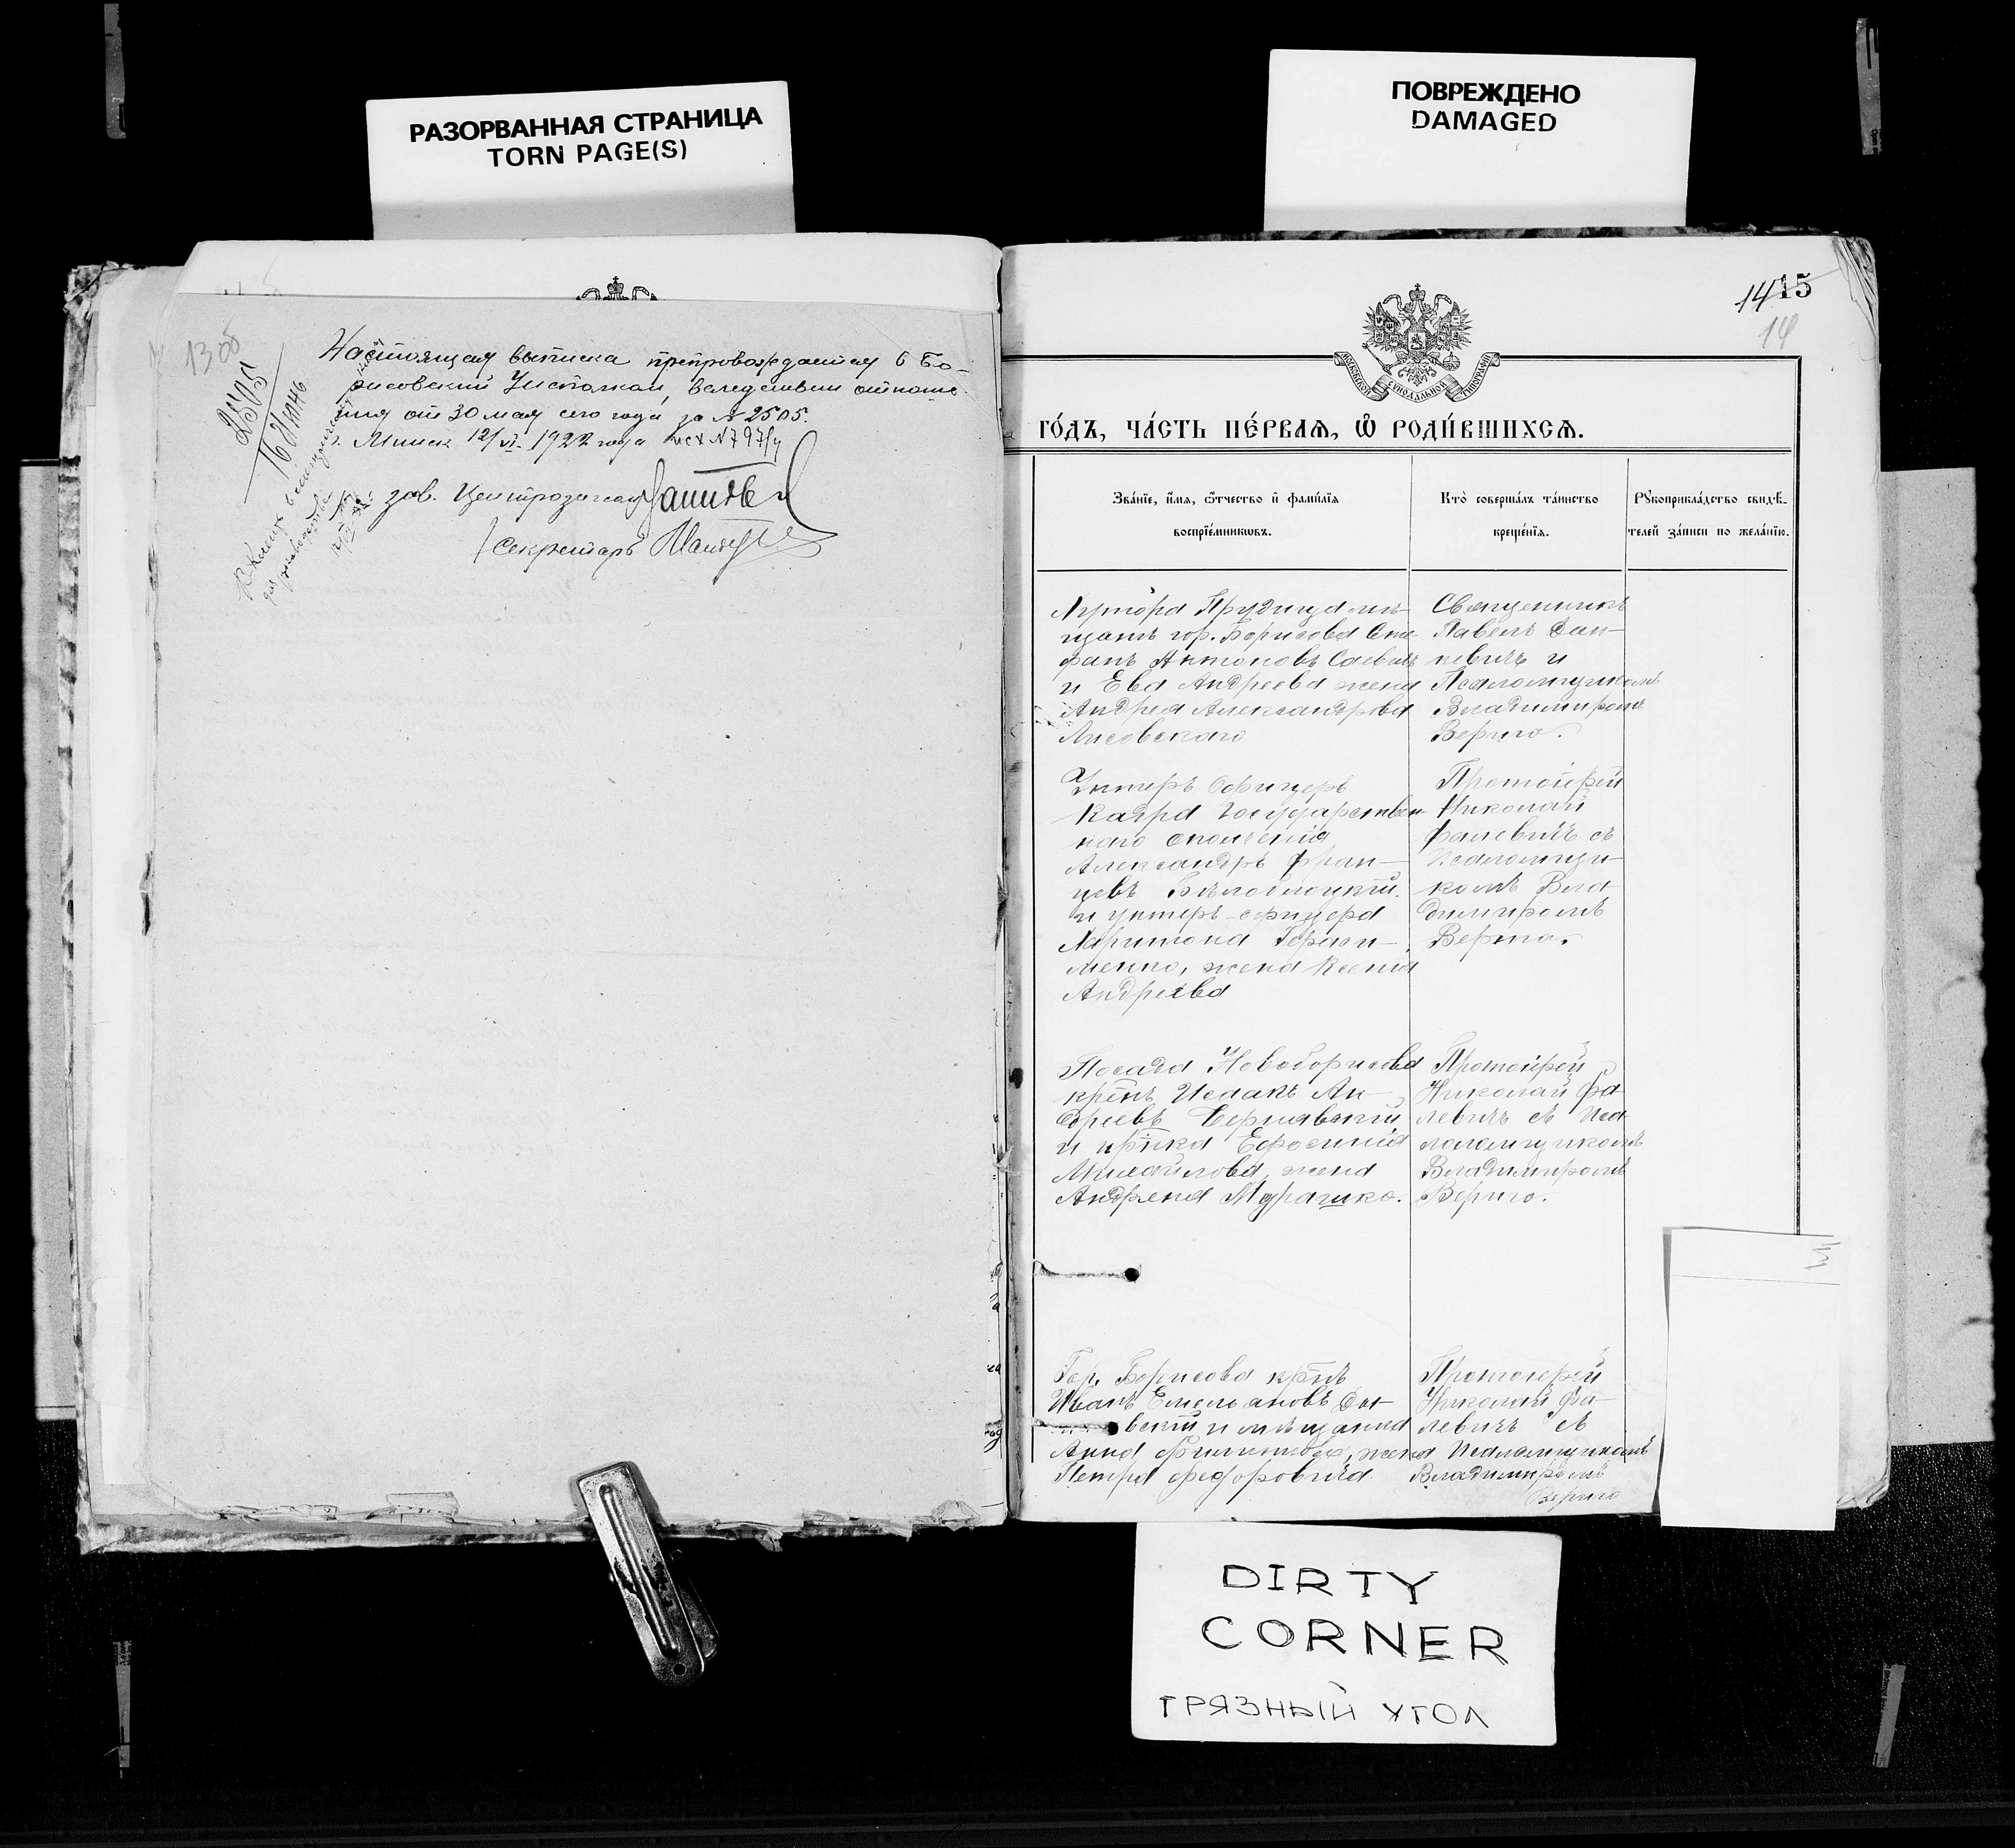 РАЗОРВАННАЯ СТРАНИЦА
TORN PAGE(S)
ПОВРЕЖДЕНО
DAMAGED
13 об
Настоящая выписка препровождается в Бо-
рисовский Уисполком, вследствии отноше-
ния от 30 мая сего года за № 2505.
г. Минск 12/VI 1922 года исх № 797/ч
зав. Центрозагсом
Секретарь
14 15
14
МОСКОВСКОЙ СѴНОДАЛЬНОЙ ТИПОГРАФІИ
го́дъ, ча́сть пе́рваѧ, ѡ҆ роди́вшихсѧ.
Зва́нїе, и҆́мѧ, ѻ҆́тчество и҆ фами́лїѧ
воспрїе́мникѡвъ.
Кто̀ соверша́лъ та́инство
креще́нїѧ.
Рꙋкоприкла́дство свидѣ́-
телей за́писи по жела́нїю.
Хутора Прудища мѣ-
щанъ гор. Борисова Сте-
фанъ Антоновъ
и Ева Андреева жена
Андрея Александрова
Лисовскаго
Священникъ
Павелъ
кевичъ и
Псаломщикомъ
Владимиромъ
Вериго.
Унтеръ Офицеръ
Кадра Государствен-
наго ополченія
Александръ Фран-
цевъ Бѣлоблоцкій
и унтеръ-офицера
Харитона Гераси-
менко, жена Ксенія
Андреева
Протоіерей
Николай
Фалевичъ съ
Псаломщи-
комъ Вла-
димиромъ
Вериго.
Посада Новоборисова
крнъ Исаакъ Ан-
дреевъ Чернявскій
и крнка Ефросинія
Михайлова, жена
Андрея Мурашко.
Протоіерей
Николай Фа-
левичъ съ Пса
ломщикомъ
Владимиромъ
Вериго.
Гор. Борисова крнъ
Иванъ Емельяновъ
вскій и мѣщанка
Анна Филиппова, жена
Петра Федоровича
Протоіерей
Николай Фа-
левичъ съ
Псаломщикомъ
Владимиромъ
Вериго
DIRTY
CORNER
ГРЯЗНЫЙ УГОЛ